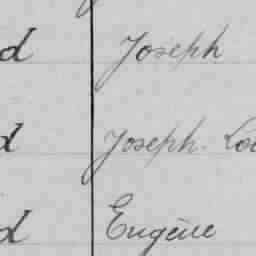 d Joseph
d Joseph
d Eugène